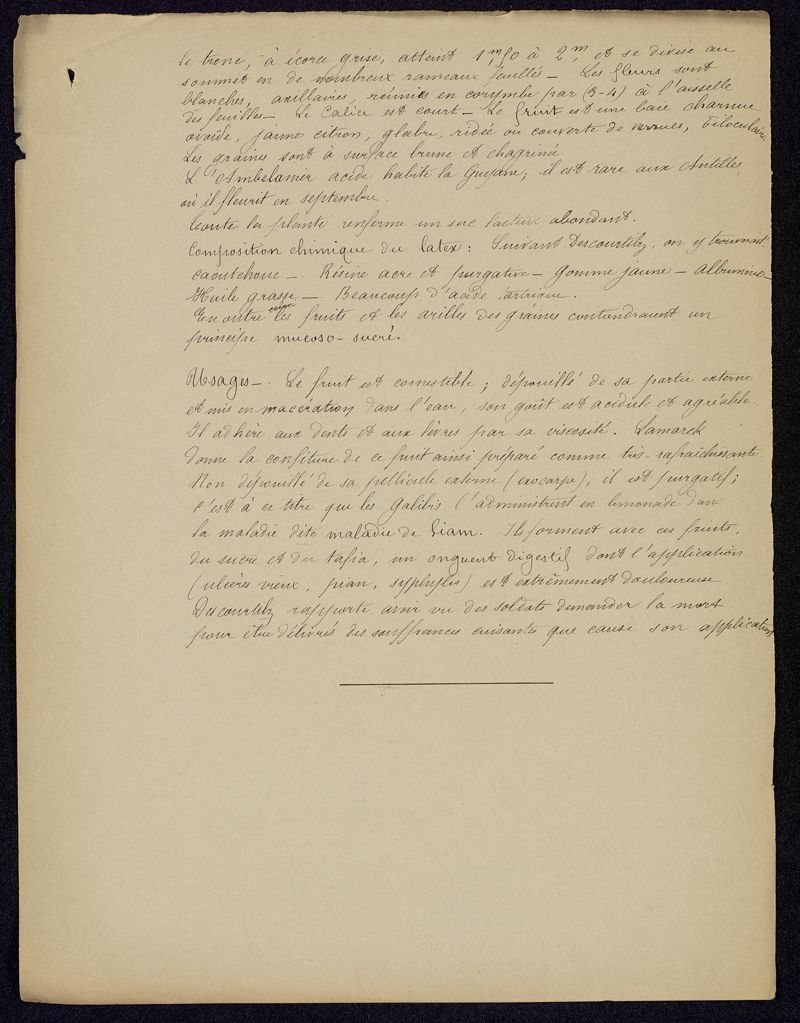 le tronc, à écorce grise, atteint 1m,50 à 2m, et se divise au
sommet en de nombreux rameaux feuillés — Les fleurs sont
blanches, axillaires, réunies en corymbe par (3-4) à l'aisselle
des feuilles — Le Calice est court — Le fruit est une baie charnue
ovoïde, jaune citron, glabre, ridée ou couverte de verrues, biloculaire.
Les graines sont à surface brune et chagrinée
L'Ambelanier acide habite la Guyane; il est rare aux Antilles
où il fleurit en septembre.
Toute la plante renferme un suc laiteux abondant.
Composition chimique du latex: Suivant Descourtilz, on y trouverait
caoutchouc — Résine acre et purgative — gomme jaune — albumine —
Huile grasse — Beaucoup d'acide tartrique.
En outre les fruits et les arilles des graines contiendraient un
principe mucoso-sucré.
Usages — Le fruit est comestible; dépouillé de sa partie externe
et mis en macération dans l'eau, son goût est acidulé et agréable.
Il adhère aux dents et aux lèvres par sa viscosité. Lamarck
donne la confiture de ce fruit ainsi préparé comme très-rafraichissante.
Non dépouillé de sa pellicule externe (exocarpe), il est purgatif;
c'est à ce titre que les Galibis l'administrent en limonade dans
la maladie dite maladie de Siam. Ils forment avec ces fruits,
du sucre et du tafia, un onguent digestif dont l'application
(ulcères vieux, pian, syphylis) est extrêmement douloureuse
Descourtilz rapporte avoir vu des soldats demander la mort
pour être délivrés des souffrances cuisantes que cause son application